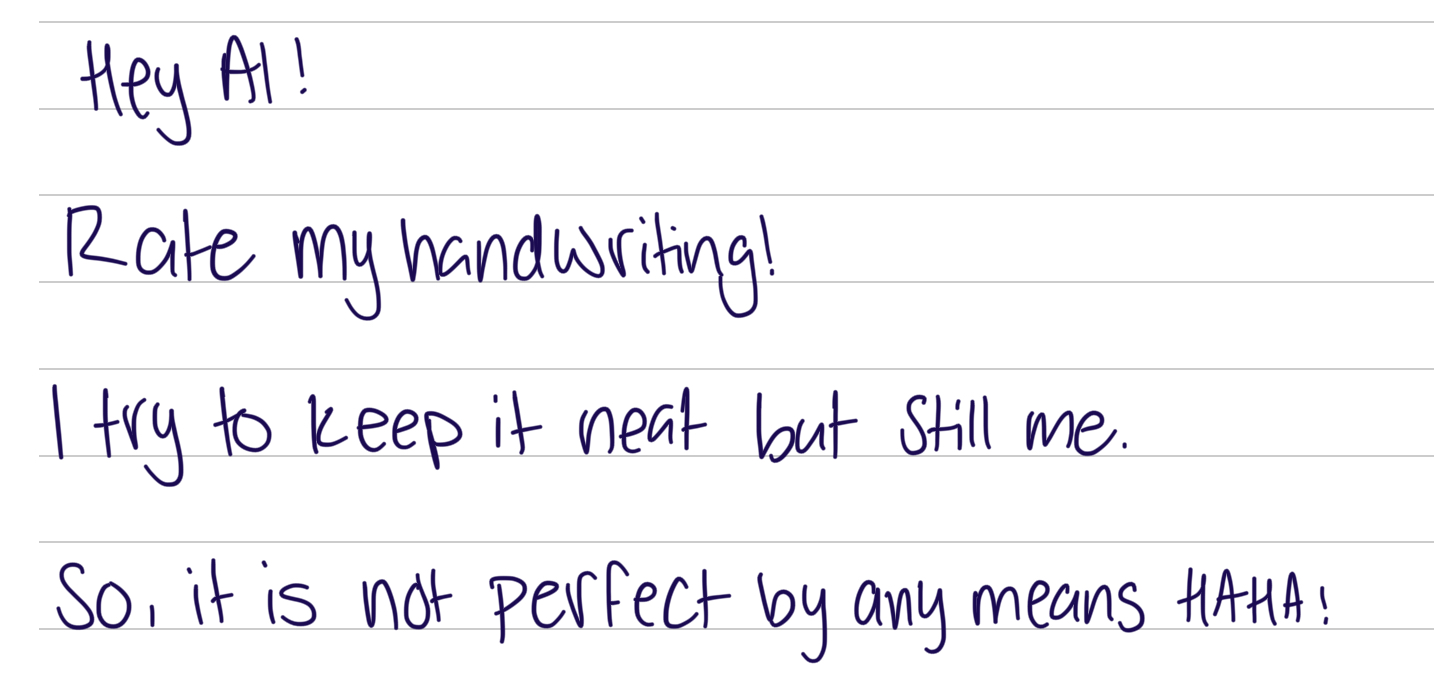 Hey AI!
Rate my handwriting!
I try to keep it neat but still me.
So, it is not perfect by any means HAHA!